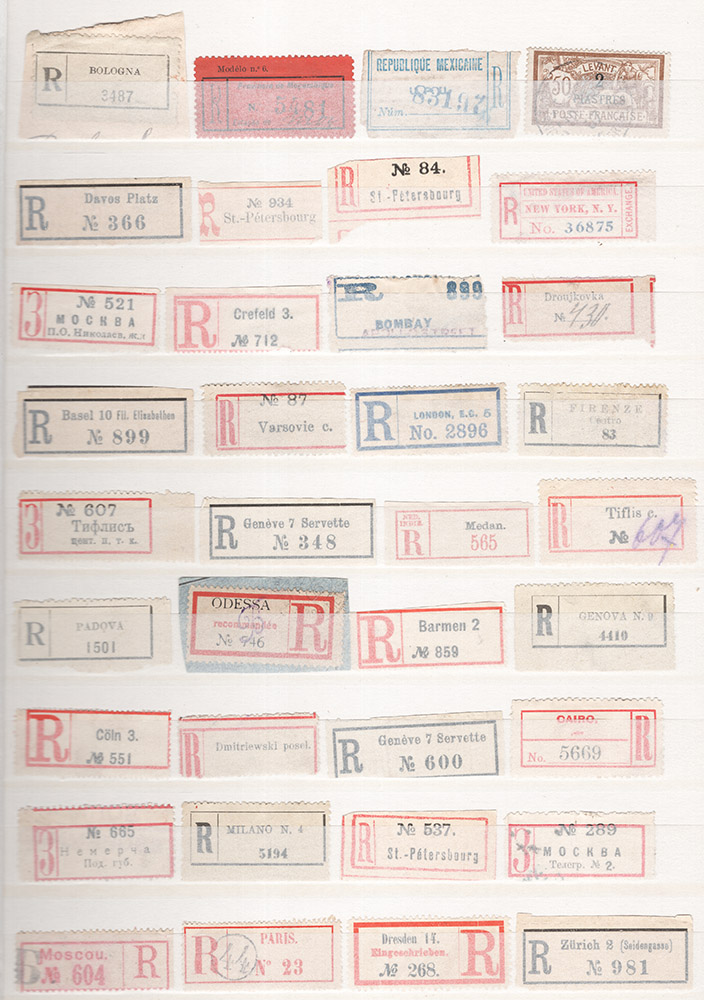 R BOLOGNA
3487
Modèlo n.º 6.
5484
REPUBLIQUE MEXICAINE R
83197
Núm.
50 LEVANT
2
PIASTRES
POSTE FRANÇAISE
R Davos Platz
№ 366
R № 934
St.-Pétersbourg
R № 84.
St.-Pétersbourg
R UNITED STATES OF AMERICA.
NEW YORK, N. Y.
No. 36875
EXCHANGE
З № 521
МОСКВА
П.О. Николаев, ж.д
R Crefeld 3.
№ 712
R 899
BOMBAY
R Droujkovka
№ 438.
R Basel 10 fil. Elisabethen
№ 899
R № 87
Varsovie c.
R LONDON, E.C. 5
No. 2896
R FIRENZE
Centro
83
З № 607
Тифлисъ
цент. п. т. к.
R Genève 7 Servette
№ 348
NED.
INDIË
R Medan.
565
R Tiflis c.
№ 607
R PADOVA
1501
ODESSA
recommandée R
№ 946
R Barmen 2
№ 859
R GENOVA N. 9
4410
R Cöln 3.
№ 551
R Dmitriewski posel.
R Genève 7 Servette
№ 600
CAIRO. R
No. 5669
З № 665
Немерча
Под. губ.
R MILANO N. 4
5194
R № 537.
St.-Pétersbourg
З № 289
МОСКВА
Телегр. № 2.
Moscou. R
№ 604
R 44 PARIS.
N° 23
Dresden 14.
Eingeschrieben. R
№ 268.
R Zürich 2 (Seidengasse)
№ 981